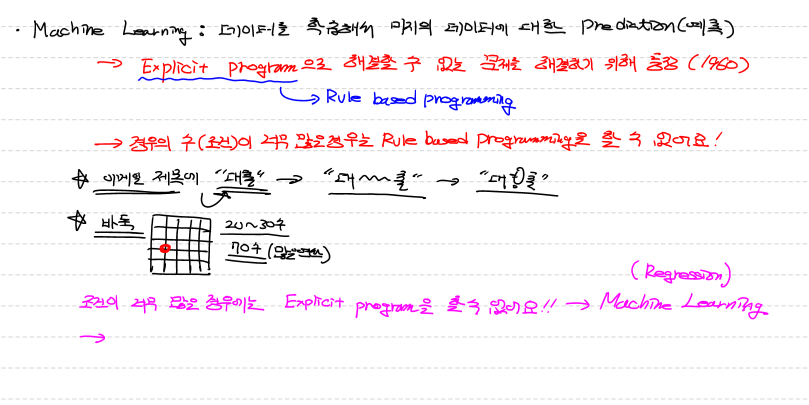 · Machine Learning : 데이터를 학습해서 미지의 데이터에 대한 Prediction(예측)
→ Explicit program으로 해결할 수 없는 문제를 해결하기 위해 등장 (1960)
→ Rule based programming
→ 경우의 수(조건)이 너무 많은경우는 Rule based Programming을 할 수 없어요!
☆ 이메일 제목에 "대출" → "대~~출" → "대할출"
☆ 바둑 20~30수
70수 (많으면)
(Regression)
조건이 너무 많은 경우에는 Explicit program을 할 수 없어요!! → Machine Learning
→